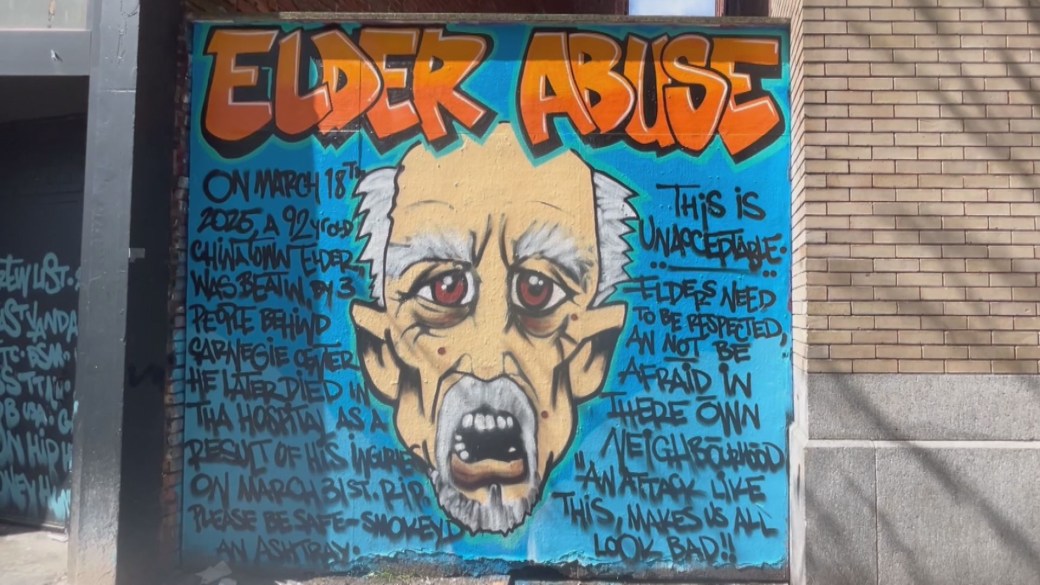 ELDER ABUSE
ON MARCH 18TH
2025, A 92 yr old
CHINATOWN ELDER,
WAS BEATIN, BY 3
PEOPLE BEHIND
CARNEGIE CENTER
HE LATER DIED IN
THA HOSPITAL AS A
RESULT OF HIS INGURIES
ON MARCH 31ST. R.I.P.
PLEASE BE SAFE - SMOKEY D
AN ASHTRAY.
THIS IS
UNACCEPTABLE.
ELDERS NEED
TO BE RESPECTED,
AN NOT BE
AFRAID IN
THERE OWN
NEIGHBOURHOOD
"AN ATTACK LIKE
THIS, MAKES US ALL
LOOK BAD!!